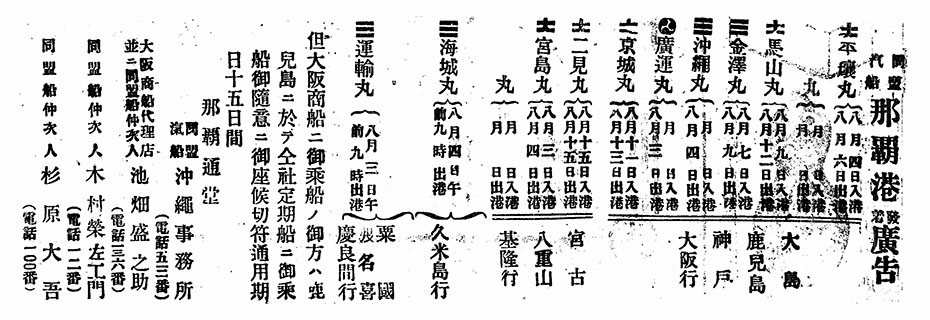 同盟汽船 那覇港 発着 廣告
平壤丸 八月四日入港 八月六日出港
丸 月日入港 月日出港
馬山丸 八月九日入港 八月十二日出港
大島
鹿兒島
金澤丸 八月 日入港 八月七日出港
神戸
沖繩丸 月 日入港 八月四日出港
大阪行
廣運丸 八月三日 日出港
京城丸 八月十一日入港 八月十三日出港
二見丸 八月十五日入港 八月十五日出港
宮古
宮島丸 八月三日入港 八月四日出港
八重山
丸 月日入港 月日出港
基隆行
海城丸 八月四日午前九時出港
久米島行
運輸丸 八月三日午前九時出港
粟國
渡名喜
慶良間行
但大阪商船ニ御乘船ノ御方ハ鹿
兒島ニ於テ仝社定期船ニ御乘
船御隨意ニ御座候切符通用期
日十五日間
那覇通堂
同盟汽船 沖繩事務所
(電話五三番)
大阪商船代理店並ニ同盟船仲次人 池畑盛之助
(電話三六番)
同盟船仲次人 木村榮左工門
(電話一二番)
同盟船仲次人 杉原大吾
(電話一〇〇番)